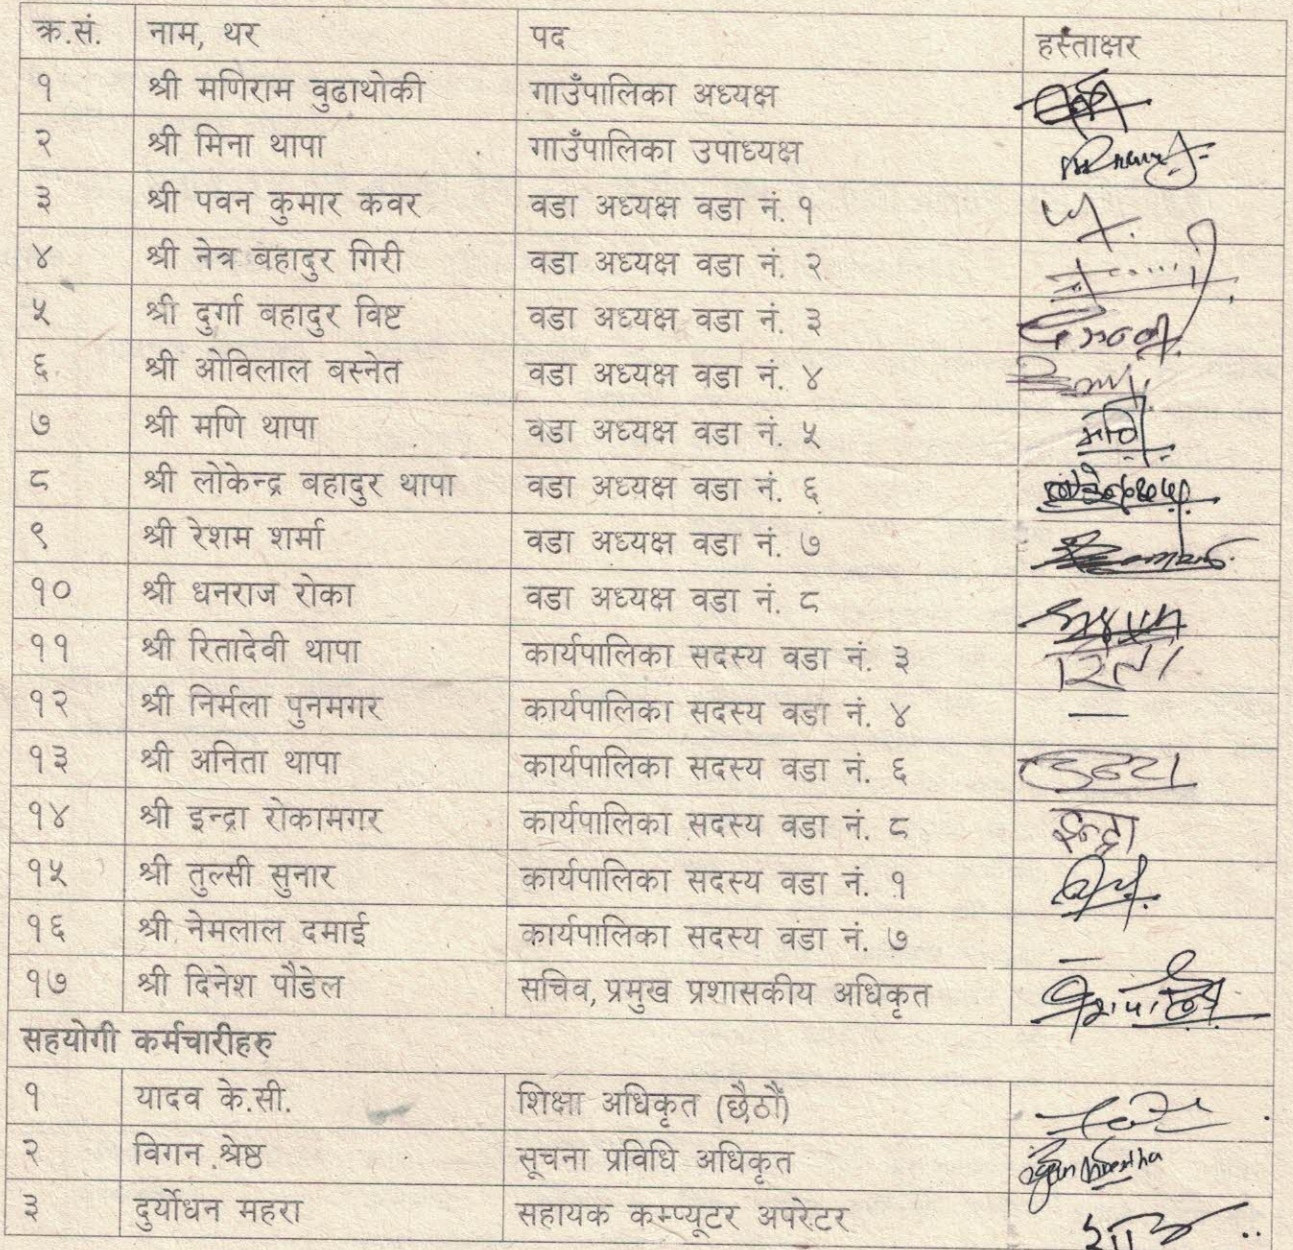 क्र.सं. नाम, थर पद हस्ताक्षर
१ श्री मणिराम वुढाथोकी गाउँपालिका अध्यक्ष
२ श्री मिना थापा गाउँपालिका उपाध्यक्ष
३ श्री पवन कुमार कवर वडा अध्यक्ष वडा नं. १
४ श्री नेत्र बहादुर गिरी वडा अध्यक्ष वडा नं. २
५ श्री दुर्गा बहादुर विष्ट वडा अध्यक्ष वडा नं. ३
६ श्री ओविलाल बस्नेत वडा अध्यक्ष वडा नं. ४
७ श्री मणि थापा वडा अध्यक्ष वडा नं. ५ मणि
८ श्री लोकेन्द्र बहादुर थापा वडा अध्यक्ष वडा नं. ६
९ श्री रेशम शर्मा वडा अध्यक्ष वडा नं. ७
१० श्री धनराज रोका वडा अध्यक्ष वडा नं. ८
११ श्री रितादेवी थापा कार्यपालिका सदस्य वडा नं. ३ रिता
१२ श्री निर्मला पुनमगर कार्यपालिका सदस्य वडा नं. ४ —
१३ श्री अनिता थापा कार्यपालिका सदस्य वडा नं. ६
१४ श्री इन्द्रा रोकामगर कार्यपालिका सदस्य वडा नं. ८ इन्द्रा
१५ श्री तुल्सी सुनार कार्यपालिका सदस्य वडा नं. १
१६ श्री नेमलाल दमाई कार्यपालिका सदस्य वडा नं. ७ —
१७ श्री दिनेश पौडेल सचिव, प्रमुख प्रशासकीय अधिकृत
सहयोगी कर्मचारीहरु
१ यादव के.सी. शिक्षा अधिकृत (छैठौं)
२ विगन श्रेष्ठ सूचना प्रविधि अधिकृत
३ दुर्योधन महरा सहायक कम्प्यूटर अपरेटर